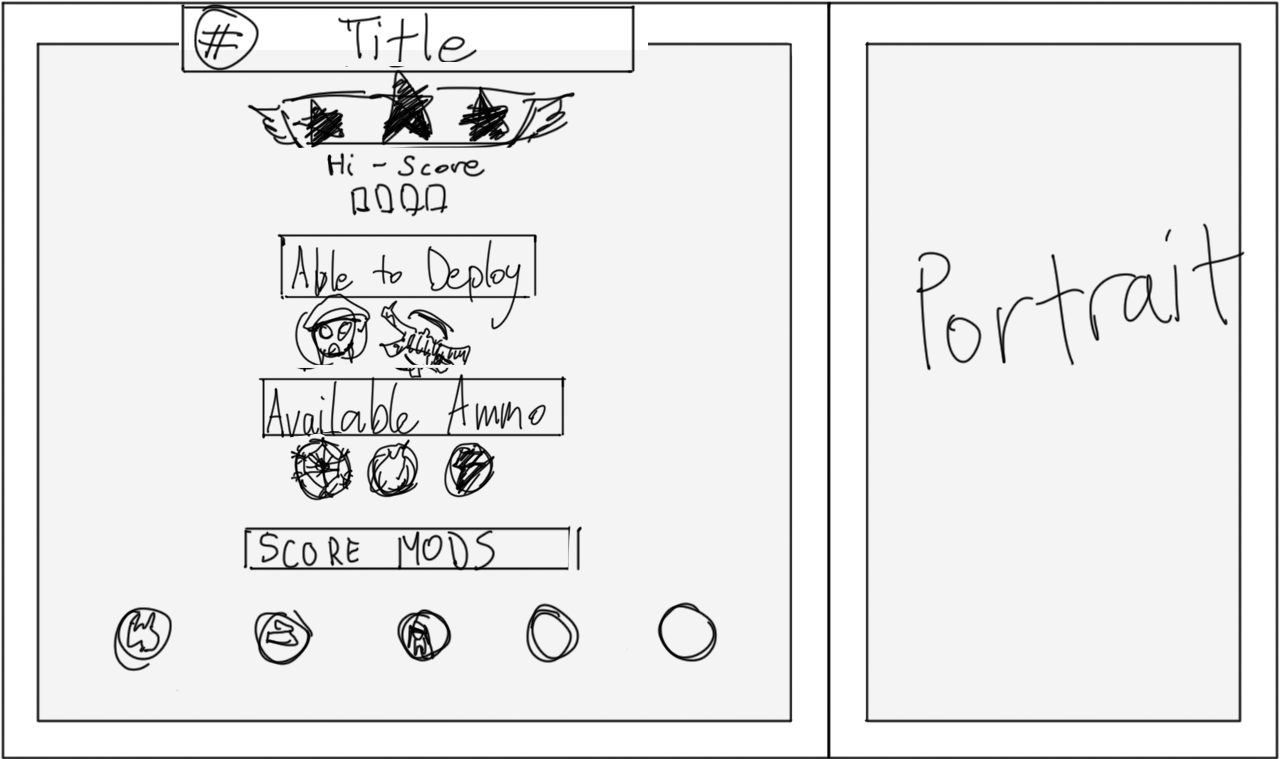 # Title
Hi - Score
0000
Able to Deploy
Available Ammo
SCORE MODS
Portrait